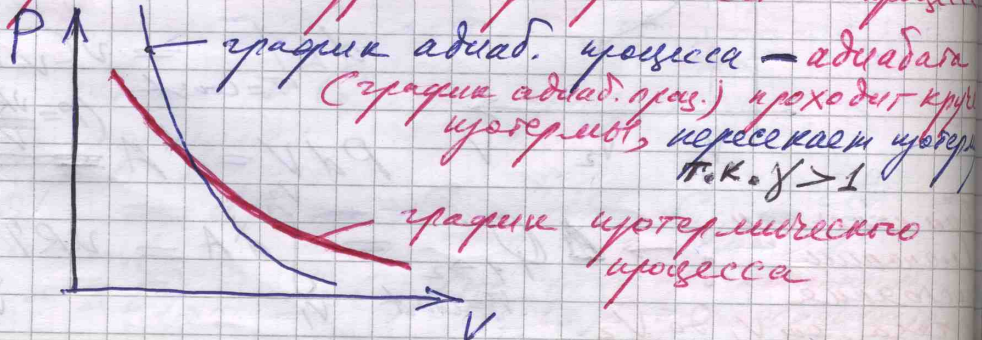 P
график адиаб. процесса – адиабата
(график адиаб. проц.) проходит круче
изотермы, пересекает
т.к. γ > 1
график изотермического
процесса
V